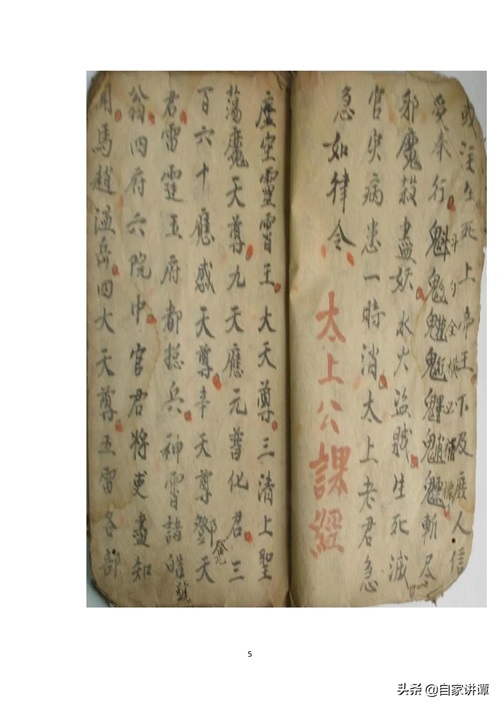 北注生死上帝王下及庶人信
受奉行魁魓斬尽
邪魔殺盡妖水火盜賊生死滅
官灾病患一時消太上老君急
急如律令
太上公課經
虛空靈霄王大天尊三清上聖
蕩魔天尊九天應元普化君三
百六十應感天尊辛天尊鄧天
君雷霆玉府都總兵神霄諸
翁四府六院中官君將吏盡知
周馬趙溫岳四大天尊五雷各部
5
头条 @自家讲谭